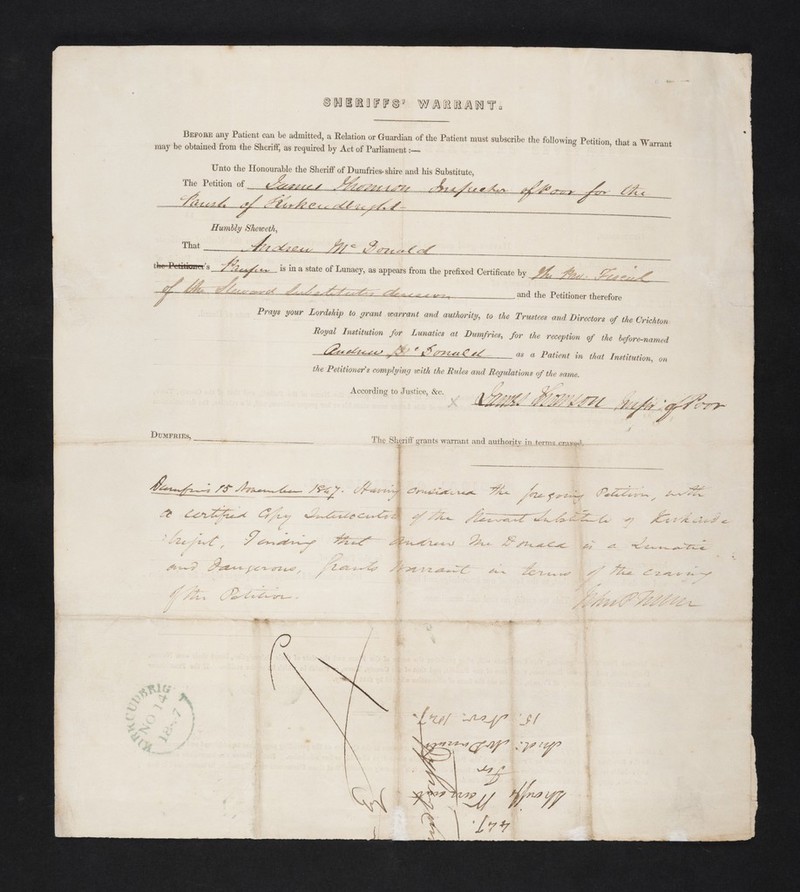 SHERIFFS' WARRANT.
BEFORE any Patient can be admitted, a Relation or Guardian of the Patient must subscribe the following Petition, that a Warrant
may be obtained from the Sheriff, as required by Act of Parliament:—
Unto the Honourable the Sheriff of Dumfries-shire and his Substitute,
The Petition of James Thomson Inspector of Poor for the
Parish of Kirkcudbright
Humbly Sheweth,
That Andrew McDonald
the Petitioner's Pauper is in a state of Lunacy, as appears from the prefixed Certificate by The Fiscal
of the Steward Substitutes decision and the Petitioner therefore
Prays your Lordship to grant warrant and authority, to the Trustees and Directors of the Crichton
Royal Institution for Lunatics at Dumfries, for the reception of the before-named
Andrew McDonald as a Patient in that Institution, on
the Petitioner's complying with the Rules and Regulations of the same.
According to Justice, &c. x James Thomson Inspr of Poor
DUMFRIES, The Sheriff grants warrant and authority in terms craved.
Dumfries 15 November 1847. Having considered the foregoing Petition, with
a certified Copy Interlocutor of the Stewart Substitute of Kirkcud-
bright, Finding that Andrew McDonald is a Lunatic
and dangerous, Grants Warrant in terms of the craving
of the Petition.
KIRKCUDBRIGHT
NO 14
1847
447.
Sheriffs Warrant
For
And: McDonald
15. Nov. 1847.